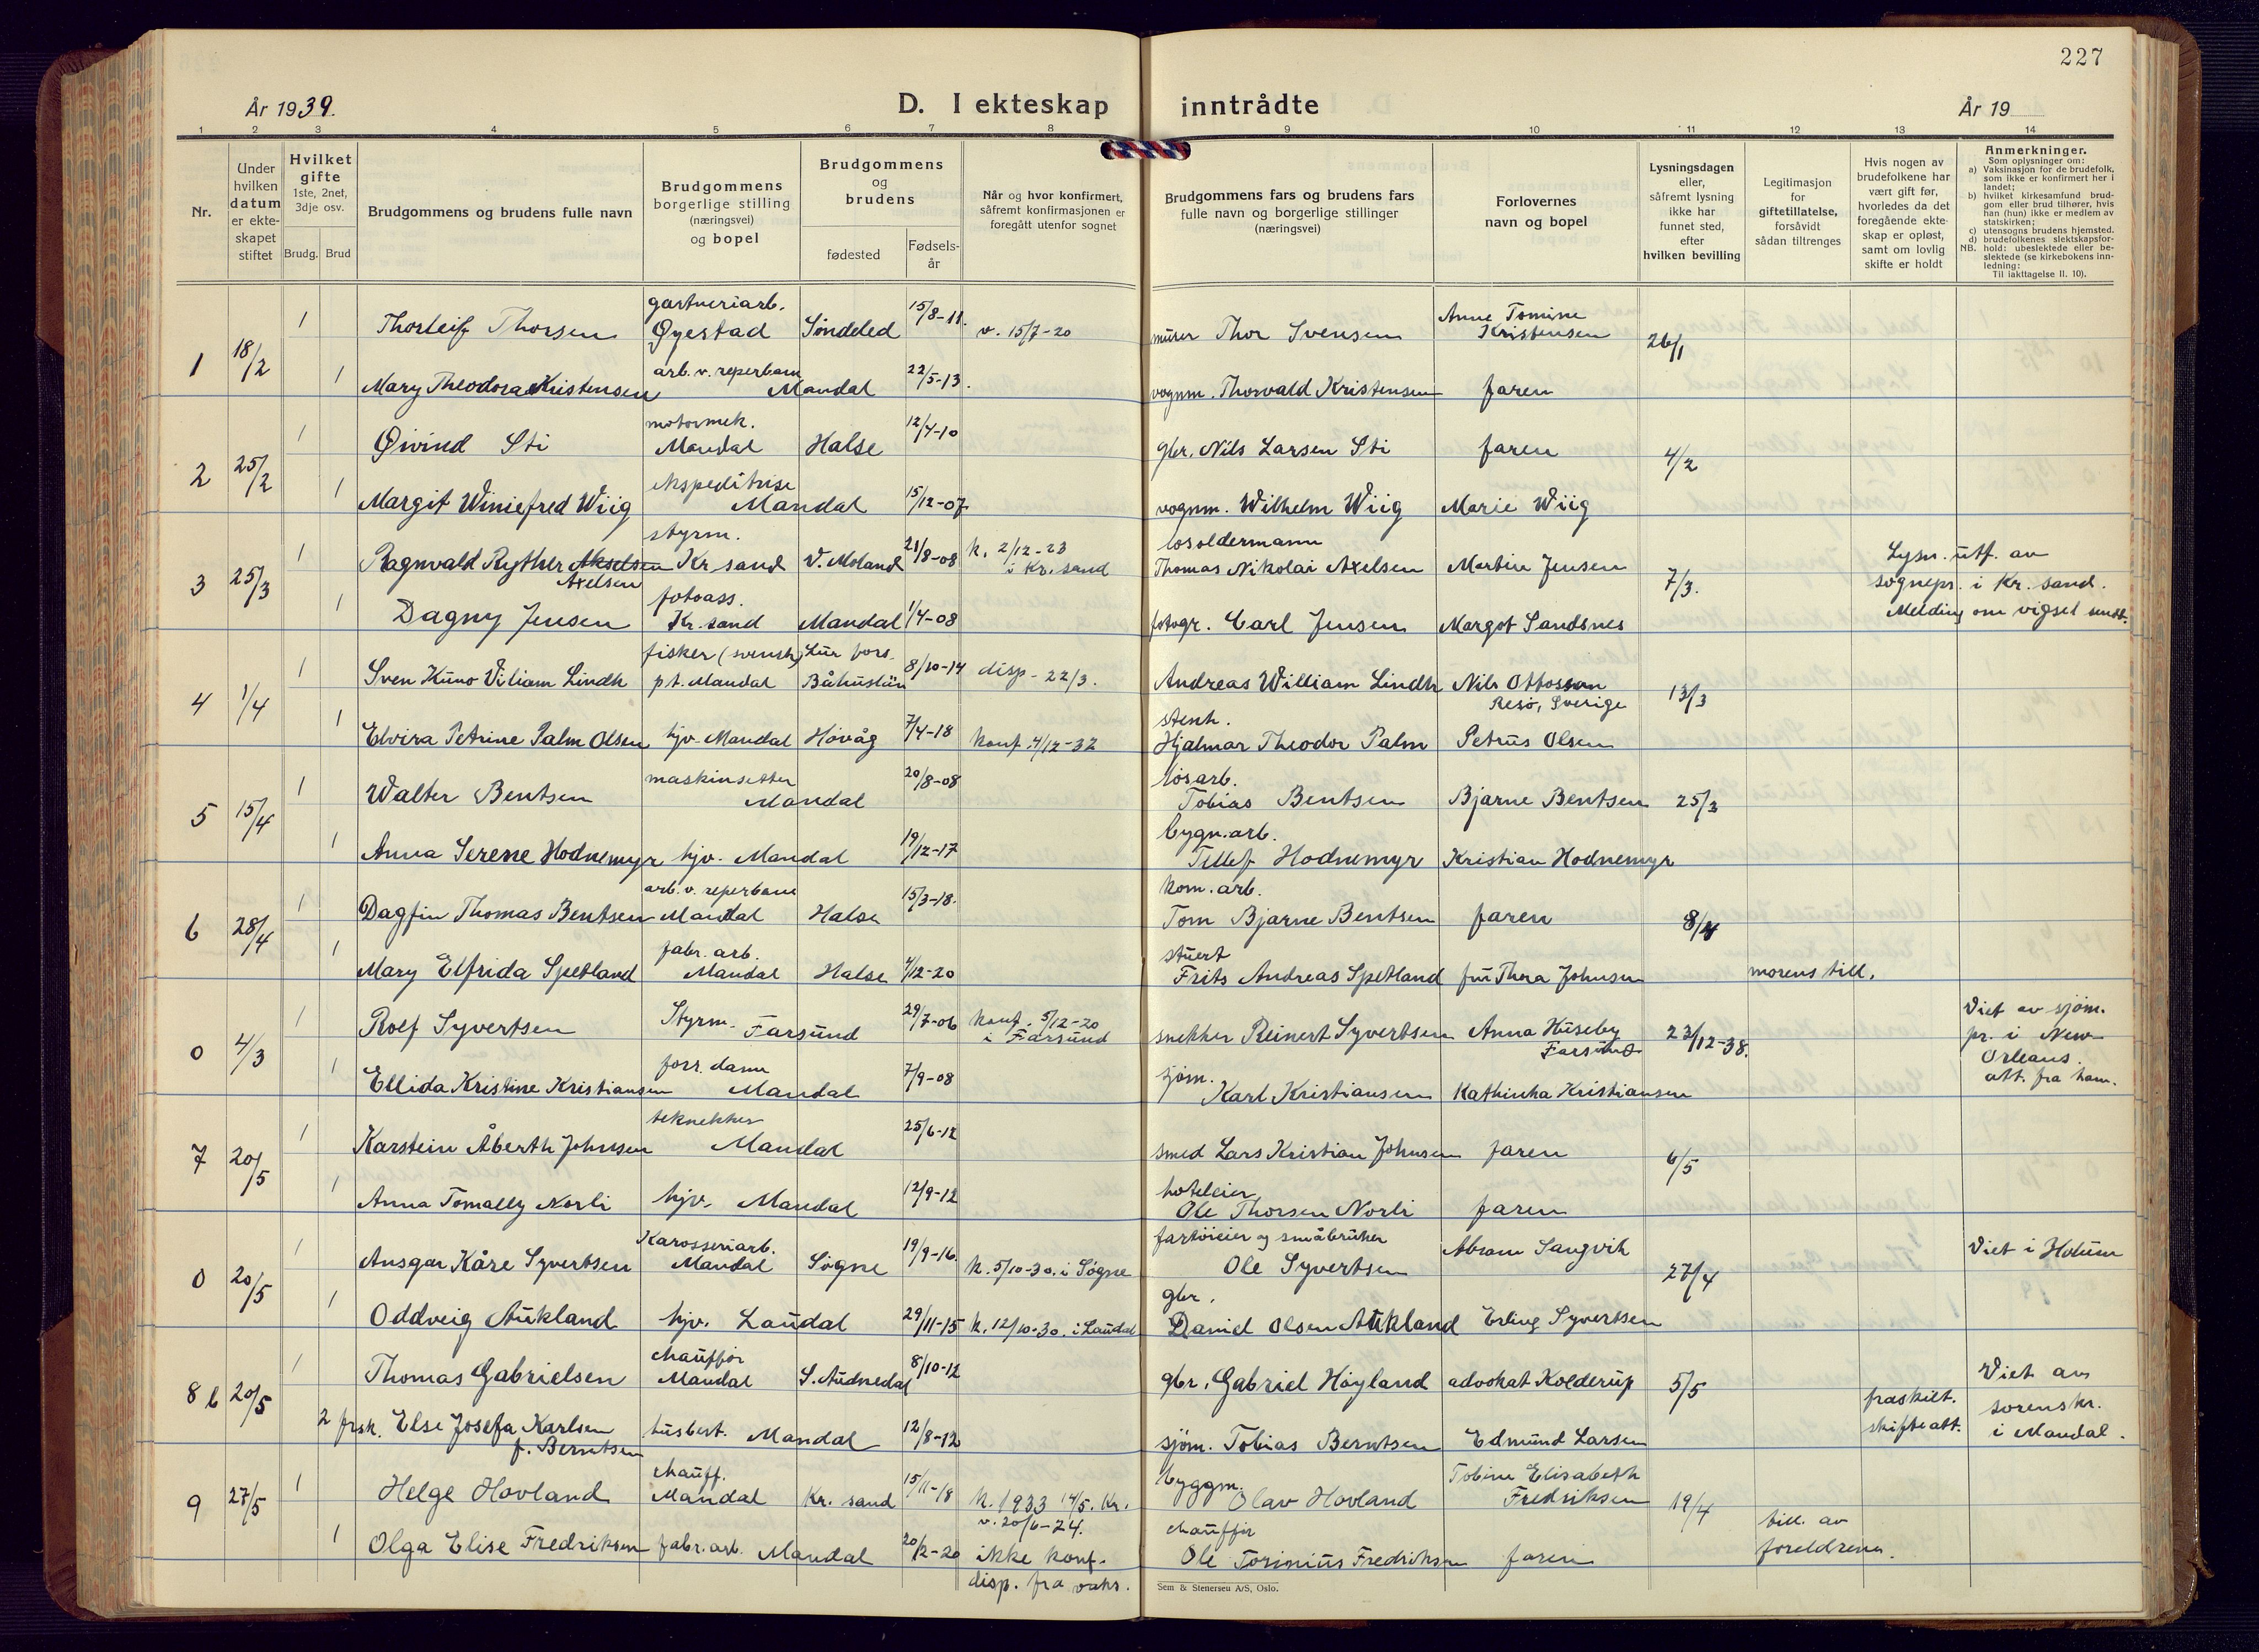 227
År 1939.
D. I ekteskap inntrådte
År 19
1 2 3 4 5 6 7 8 9 10 11 12 13 14
Nr.
Under hvilken datum er ekteskapet stiftet
Hvilket gifte 1ste, 2net, 3dje osv.
Brudg. Brud
Brudgommens og brudens fulle navn
Brudgommens borgerlige stilling (næringsvei) og bopel
Brudgommens og brudens
fødested
Fødsels-år
Når og hvor konfirmert, såfremt konfirmasjonen er foregått utenfor sognet
Brudgommens fars og brudens fars fulle navn og borgerlige stillinger (næringsvei)
Forlovernes navn og bopel
Lysningsdagen eller, såfremt lysning ikke har funnet sted, efter hvilken bevilling
Legitimasjon for giftetillatelse, forsåvidt sådan tiltrenges
Hvis nogen av brudefolkene har vært gift før, hvorledes da det foregående ekteskap er opløst, samt om lovlig skifte er holdt
Anmerkninger.
Som oplysninger om:
a) Vaksinasjon for de brudefolk, som ikke er konfirmert her i landet;
b) hvilket kirkesamfund brudgom eller brud tilhører, hvis han (hun) ikke er medlem av statskirken;
c) utensogns brudens hjemsted.
d) brudefolkenes slektskapsforhold: ubeslektede eller beslektede (se kirkebokens innledning:
NB. Til iakttagelse II. 10).
1 18/2 1 Thorleif Thorsen gartneriarb. Øyestad Søndeled 15/8-11. v. 15/7-20 murer Thor Svensen Anne Tomine Kristensen 26/1
1 Mary Theodora Kristensen arb. v. reperbane Mandal 22/5-13. vognm. Thorvald Kristensen faren
2 25/2 1 Øivind Sti motormek. Mandal Halse 12/4-10 gbr. Nils Larsen Sti faren 4/2
1 Margit Winiefred Wiig ekspeditrise Mandal 15/12-07 vognm. Wilhelm Wiig Marie Wiig
3 25/3 1 Ragnvald Ryther Akselsen Axelsen styrm. Kr sand V. Moland 21/8-08 k. 2/12-23 i Kr. sand losoldermann Thomas Nikolai Axelsen Martin Jensen 7/3. Lysn. utf. av sognepr. i Kr. sand. Melding om vigsel sendt.
1 Dagny Jensen fotoass. Kr. sand Mandal 1/4-08 fotogr. Carl Jensen Margot Sandsnes
4 1/4 1 Sven Kuno Viliam Lindh fisker (svensk) pt. Mandal Lur fors. Båhuslän 8/10-14 disp - 22/3. Andreas William Lindh Nils Ottosson Resö, Sverige 13/3
1 Elvira Petrine Palm Olsen hjv. Mandal Høvåg 7/4-18 konf. 4/12-32 stenh. Hjalmar Theodor Palm Petrus Olsen
5 15/4 1 Walter Bentsen maskinsetter Mandal 20/8-08 løsarb. Tobias Bentsen Bjarne Bentsen 25/3
1 Anna Serene Hodnemyr hjv. Mandal 19/12-17 bygn.arb. Tellef Hodnemyr Kristian Hodnemyr
6 28/4 1 Dagfin Thomas Bentsen arb. v. reperbane Mandal Halse 15/3-18. kom. arb. Tom Bjarne Bentsen faren 8/4
1 Mary Elfrida Spetland fabr. arb. Mandal Halse 4/12-20 stuert Frits Andreas Spetland fru Thea Johnsen morens till.
0 4/3 1 Rolf Syvertsen Styrm. Farsund 29/7-06 konf. 5/12-20 i Farsund snekker Reinert Syvertsen Anna Huseby Farsund 23/12-38. Viet av sjøm. pr. i New Orleans. att. fra ham.
1 Ellida Kristine Kristiansen forr. dame Mandal 7/9-08 sjøm. Karl Kristiansen Kathinka Kristiansen
7 20/5 1 Karstein Åberth Johnsen teknekker Mandal 25/6-12 smed Lars Kristian Johnsen faren 6/5
1 Anna Tomally Norli hjv. Mandal 12/9-12 hoteleier Ole Thorsen Norli faren
0 20/5 1 Ansgar Kåre Syvertsen Karosseriarb. Mandal Søgne 19/9-16. k. 5/10-30. i Søgne fartøieier og småbruker Ole Syvertsen Abram Sangvik 27/4 Viet i Holum
1 Oddveig Aukland hjv. Laudal 29/11-15 k. 12/10-30. i Laudal gbr. Daniel Olsen Aukland Erling Syvertsen
8 b 20/5 1 Thomas Gabrielsen chauffør Mandal S. Audnedal 8/10-12 gbr. Gabriel Høyland advokat Kolderup 5/5 Viet av sorenskr. i Mandal.
2 frsk. Else Josefa Karlsen f. Berntsen husbest. Mandal 12/8-12 sjøm. Tobias Berntsen Edmund Larsen fraskilt. skifteatt.
9 27/5 1 Helge Hovland chauff. Mandal Kr. sand 15/11-18 k. 1933 14/5. Kr. v. 20/6-24. byggm. Olav Hovland Tobine Elisabeth Fredriksen 19/4
1 Olga Elise Fredriksen fabr. arb. Mandal 20/2-20 ikke konf. disp. fra vaks. chauffør Ole Torinius Fredriksen faren till. av foreldrene.
Sem & Stenersen A/S, Oslo.